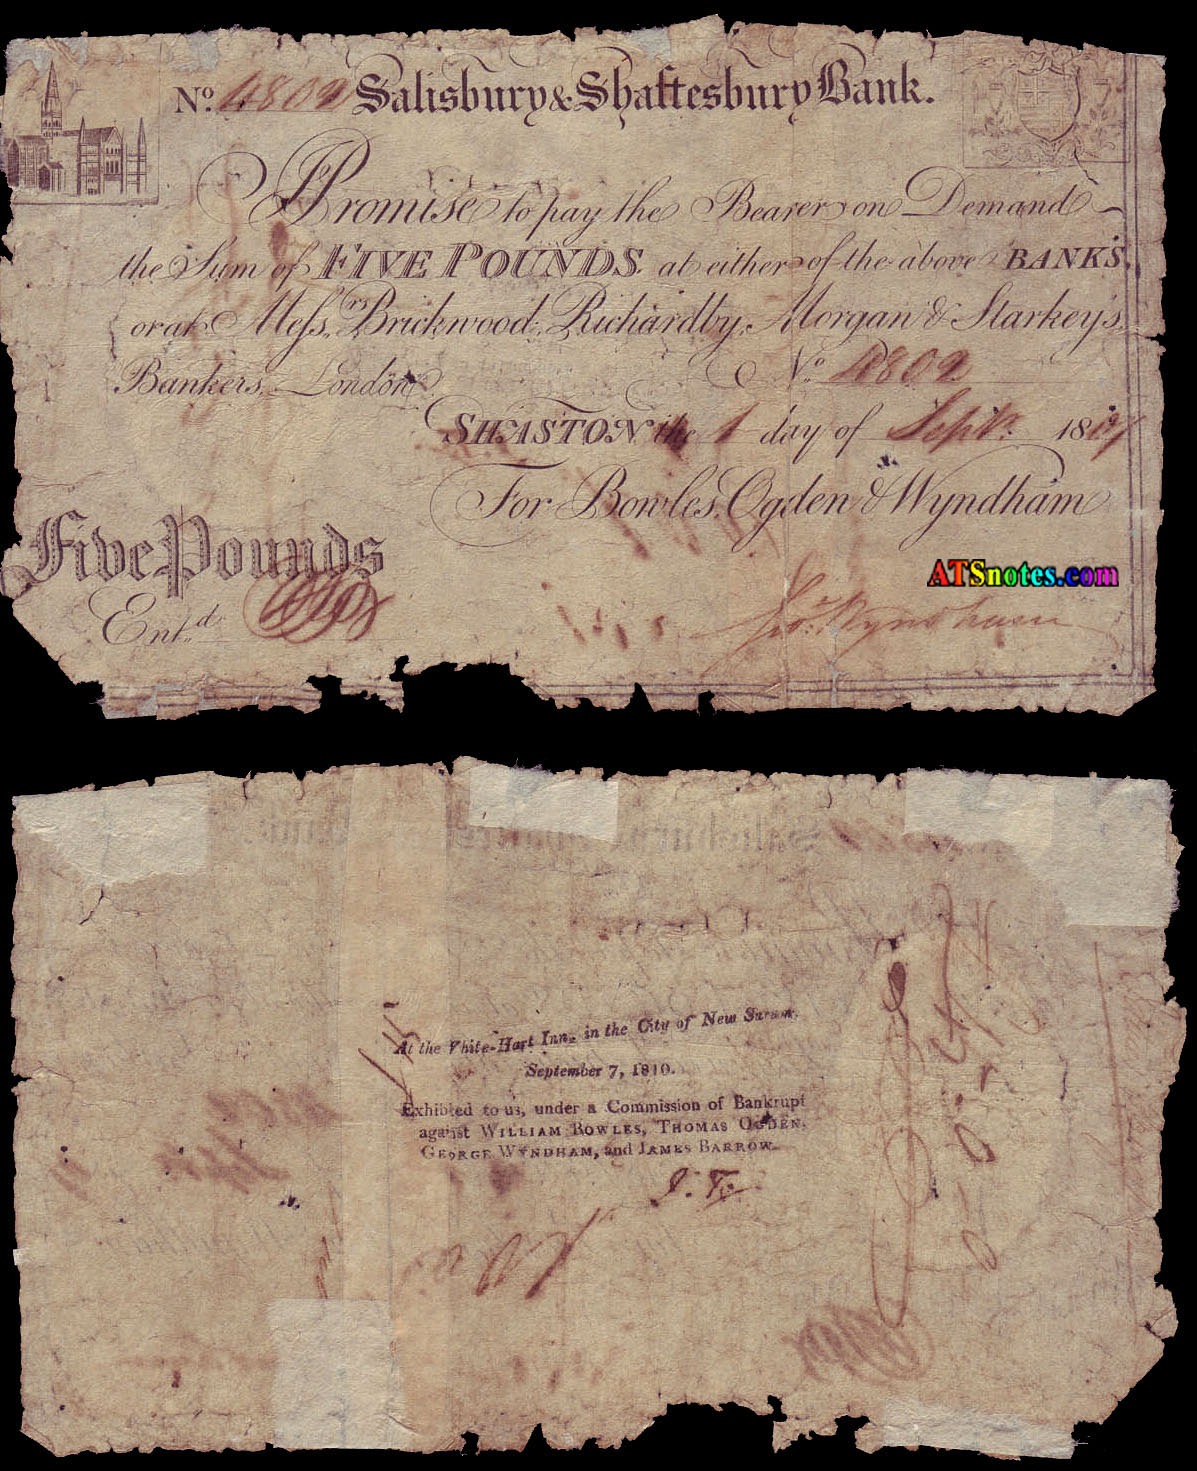 No. 4802 Salisbury & Shaftesbury Bank.
I Promise to pay the Bearer on Demand
the Sum of FIVE POUNDS at either of the above BANKS,
or at Messrs. Brickwood, Richardby, Morgan & Starkey's,
Bankers, London
No. 4802
SHASTON the 1 day of Septr. 18
For Bowles, Ogden & Wyndham
ATSnotes.com
Five Pounds
Entd.
Geo. Wyndham
At the White-Hart Inn, in the City of New Sarum.
September 7, 1810.
Exhibited to us, under a Commission of Bankrupt
against WILLIAM BOWLES, THOMAS OGDEN,
GEORGE WYNDHAM, and JAMES BARROW.